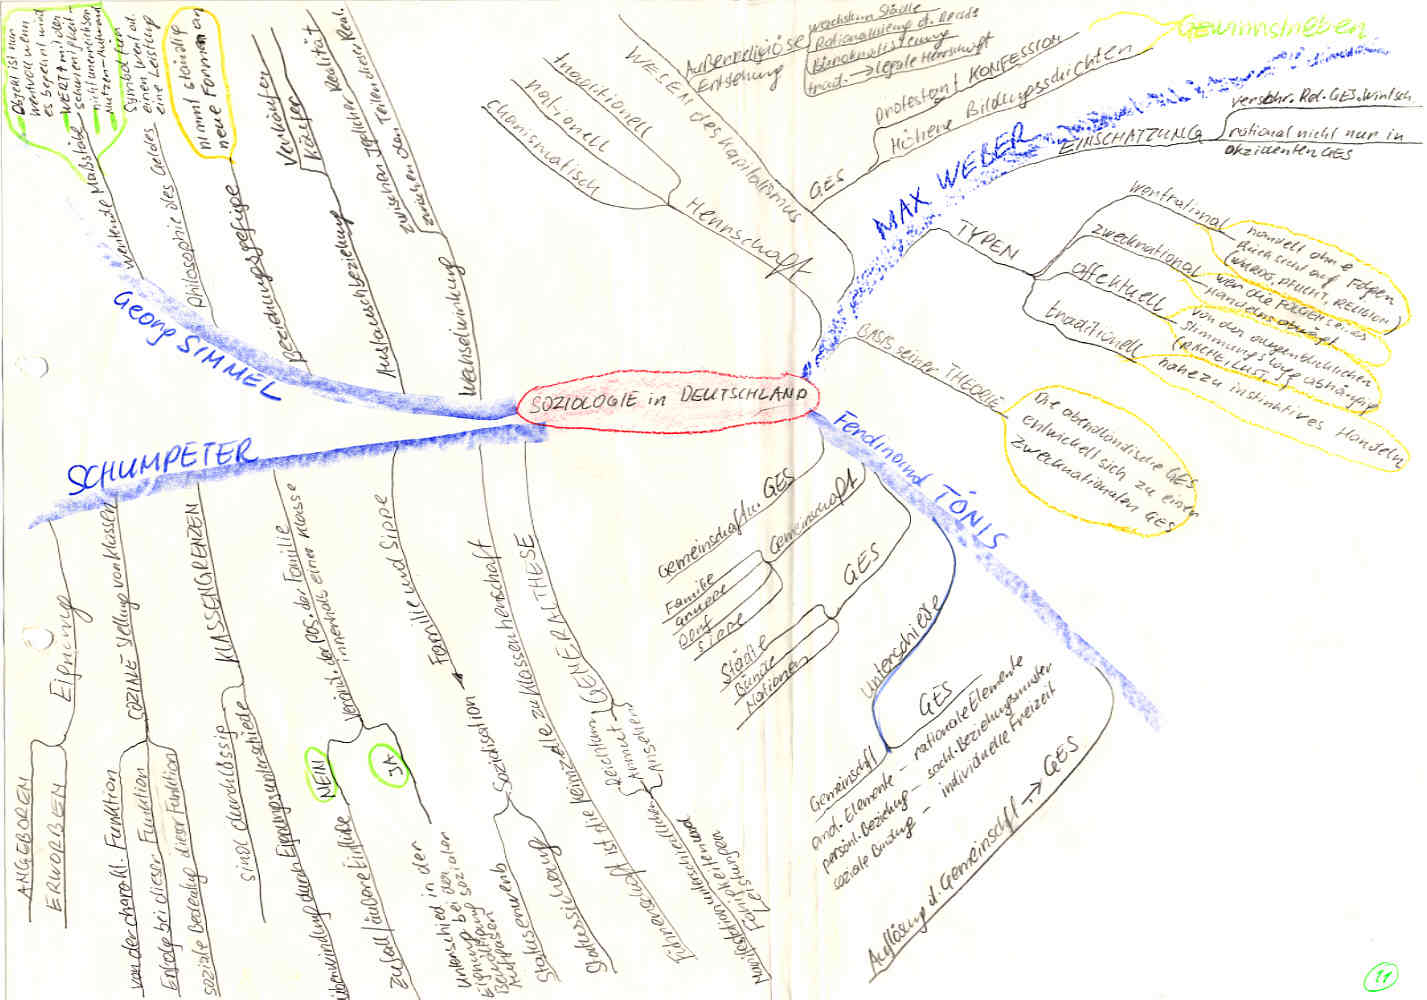 SOZIOLOGIE in DEUTSCHLAND
Georg SIMMEL
wertende Maßstäbe
Objekt ist nur
wertvoll wenn
es begehrt wird
WERT mit der
Philosophie des Geldes
Symbol für
einen Wert od.
eine Leistung
Beziehungsgefüge
nimmt ständig
neue Formen an
Austauschbeziehung
Verkäufer
Käufer
Wechselwirkung
zwischen jeglicher Realität
zwischen den Teilen dieser Real.
MAX WEBER
Herrschaft
traditionell
rationell
charismatisch
GES
WESEN des Kapitalismus
Außerreligiöse
Entstehung
Wachstum Städte
Rationalisierung d. Rechts
Bürokratisierung
trad. → legale Herrschaft
protestant KONFESSION
Höhere Bildungsschichten
Gewinnstreben
EINSCHÄTZUNG
rational nicht nur in
okzidenten GES
TYPEN
wertrational
handelt ohne
Rücksicht auf Folgen
(WÜRDE, PFLICHT, RELIGION)
zweckrational
wer die FOLGEN seines
Handelns abwägt
affektuell
von der augenblicklichen
Stimmungslage abhängig
(RACHE, LUST,
traditionell
nahezu instinktives Handeln
BASIS seiner THEORIE
Die abendländische GES
entwickelt sich zu einer
zweckrationalen GES
Ferdinand TÖNIS
Gemeinschaft u. GES
Gemeinschaft
Familie
Gruppe
Dorf
Sippe
GES
Städte
Bünde
Nationen
Unterschiede
Gemeinschaft
GES
and. Elemente - rationale Elemente
persönl. Beziehung - sachl. Beziehungsmuster
soziale Bindung - individuelle Freizeit
Auflösung d. Gemeinschaft → GES
SCHUMPETER
Eignung
ANGEBOREN
ERWORBEN
SOZIALE Stellung von Klassen
von der charakt. Funktion
Erfolg bei dieser Funktion
soziale Bedeutung dieser Funktion
KLASSENGRENZEN
sind durchlässig
Unterschiede
Veränd. der POS. der Familie
innerhalb einer Klasse
NEIN
JA
Überwindung durch Eignungsunterschiede
Zufall/äußere Einflüße
Familie und Sippe
Unterschied in der
Eignung bei der
Familie → Sozialisation
Klassenherrschaft
Statuserwerb
Statussicherung
GENERALTHESE
Herrschaft ist die Keimzelle zu Klassenherrschaft
Reichtum
Armut
Ansehen
Führerschaft
Fähigkeiten und
Leistungen
11